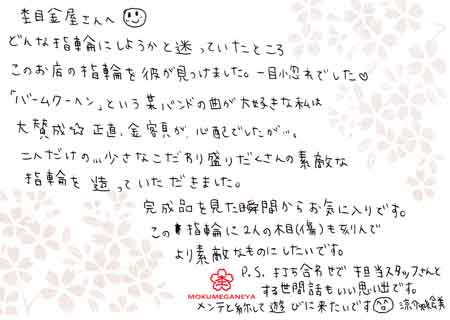 杢目金屋さんへ
どんな指輪にしようかと迷っていたところ
このお店の指輪を彼が見つけました。一目惚れでした♡
「バームクーヘン」という某バンドの曲が大好きな私は
大賛成☆ 正直、金額が、心配でしたが…。
二人だけの…小さなこだわり盛りだくさんの素敵な
指輪を造っていただきました。
完成品を見た瞬間からお気に入りです。
この指輪に2人の木目(傷)も刻んで
より素敵なものにしたいです。
P.S. 打ち合わせで担当スタッフさんと
する世間話もいい思い出です。
メンテと称して遊びに来たいです
MOKUMEGANEYA